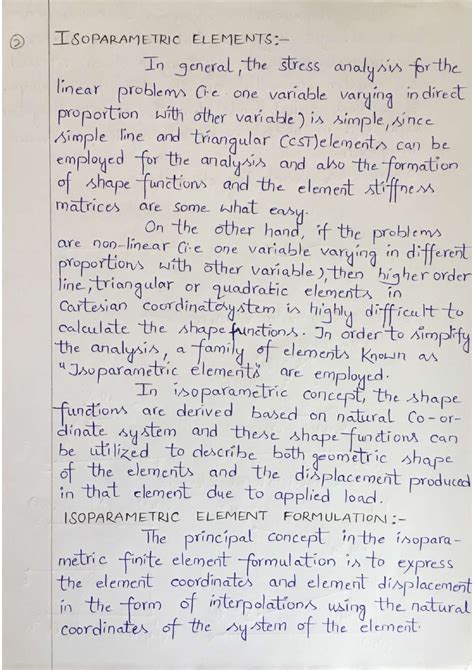 ② ISOPARAMETRIC ELEMENTS:-
In general, the stress analysis for the
linear problems (i.e one variable varying in direct
proportion with other variable) is simple, since
simple line and triangular (CST) elements can be
employed for the analysis and also the formation
of shape functions and the element stiffness
matrices are some what easy.
On the other hand, if the problems
are non-linear (i.e one variable varying in different
proportions with other variable), then higher order
line, triangular or quadratic elements in
Cartesian coordinate system is highly difficult to
calculate the shape functions. In order to simplify
the analysis, a family of elements known as
"Isoparametric elements" are employed.
In isoparametric concept, the shape
functions are derived based on natural Co-or-
dinate system and these shape functions can
be utilized to describe both geometric shape
of the elements and the displacement produced
in that element due to applied load.
ISOPARAMETRIC ELEMENT FORMULATION:-
The principal concept in the isopara-
metric finite element formulation is to express
the element coordinates and element displacement
in the form of interpolations using the natural
coordinates of the system of the element.